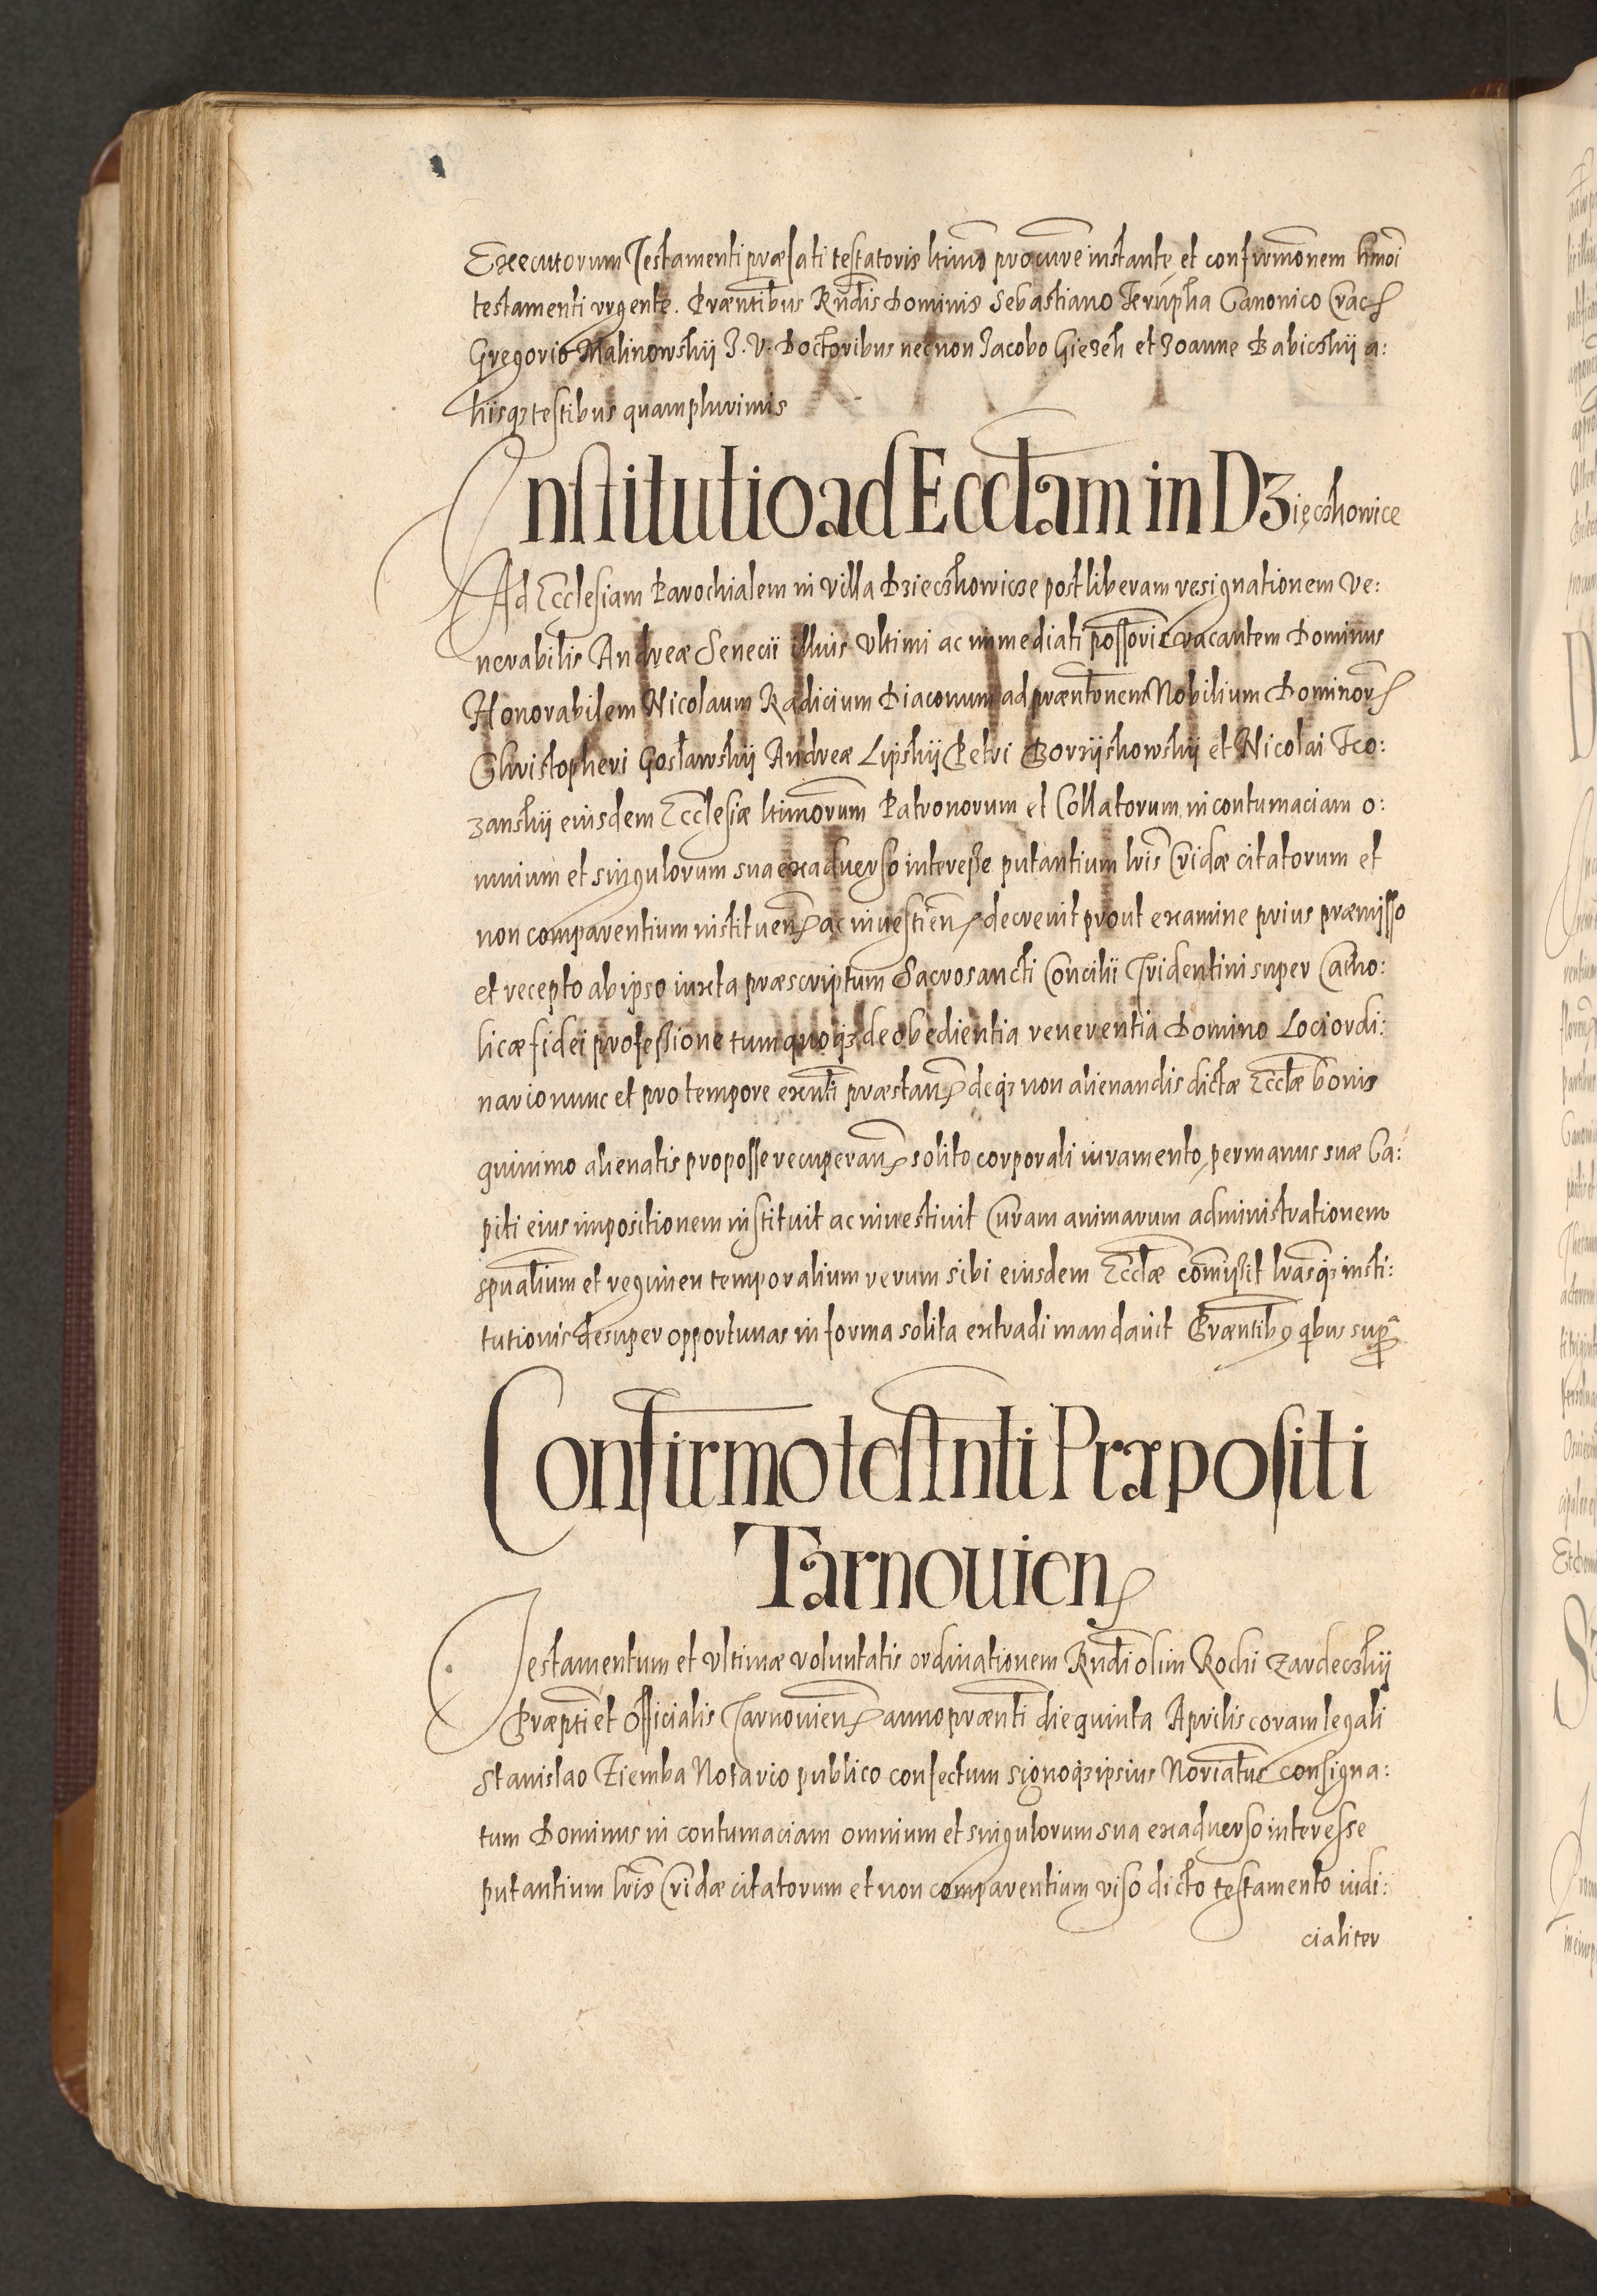 Executorum Testamenti præfati testatoris ltimo procure instante et confirmonem hmoi
testamenti vrgente. Præntibus Rndis Dominis Sebastiano Krupka Canonico Crac
Gregorio Malinowskÿ J. V. Doctoribus necnon Jacobo Giezek et Joanne Babiczkÿ a:
liisqz testibus quamplurimis
Institutio ad Ecctam in Dzięczkowice
Ad Ecclesiam Parochialem in villa Dzieczkowicze post liberam resignationem Ve:
nerabilis Andreæ Senecii illius vltimi ac immediati possoris vacantem Dominus
Honorabilem Nicolaum Radicium Diaconum ad præntonem Nobilium Dominor
Christopheri Gosławskÿ Andreæ Lipskÿ Petri Borzÿskowskÿ et Nicolai Ko:
zanskÿ eiusdem Ecclesiæ ltimorum Patronorum et Collatorum, in contumaciam o:
mnium et singulorum sua ex aduerso interesse putantium lris Cridæ citatorum et
non comparentium instituen ac inuestien decreuit prout examine prius præmisso
et recepto ab ipso iuxta præscriptum Sacrosancti Concilii Tridentini super Catho:
licæ fidei professione tum quoqz de obedientia reuerentia Domino Loci ordi:
nario nunc et pro tempore exnti præstan deqz non alienandis dictæ Ecctæ bonis
quinimo alienatis pro posse recuperan solito corporali iuramento per manus suæ Ca:
piti eius impositionem instituit ac inuestiuit Curam animarum administrationem
spualium et regimen temporalium rerum sibi eiusdem Ecctæ comisit lrasqz insti:
tutionis desuper opportunas in forma solita extradi mandauit Præntibq qbus supra
Confirmo testnti Præpositi
Tarnouien
Testamentum et vltimæ voluntatis ordinationem Rndi olim Rochi Zardeczkÿ
Præpti et Officialis Tarnouien anno prænti die quinta Aprilis coram legali
Stanislao Ziemba Notario publico confectum signoqz ipsius Noriatus consigna:
tum Dominus in contumaciam omnium et singulorum sua ex aduerso interesse
putantium lris Cridæ citatorum et non comparentium viso dicto testamento iudi:
cialiter